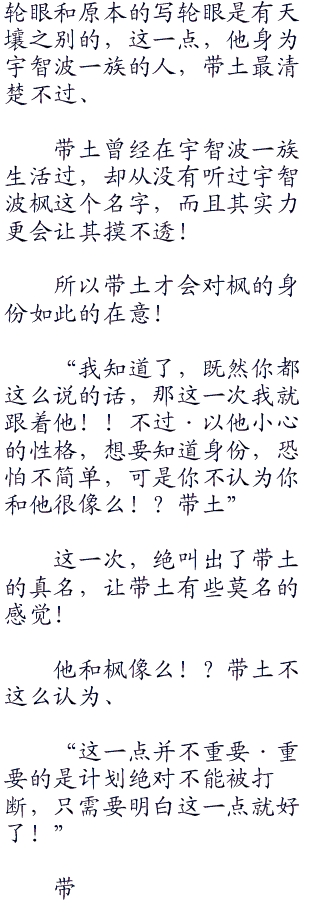 轮眼和原本的写轮眼是有天
壤之别的，这一点，他身为
宇智波一族的人，带土最清
楚不过、
带土曾经在宇智波一族
生活过，却从没有听过宇智
波枫这个名字，而且其实力
更会让其摸不透！
所以带土才会对枫的身
份如此的在意！
“我知道了，既然你都
这么说的话，那这一次我就
跟着他！！不过·以他小心
的性格，想要知道身份，恐
怕不简单，可是你不认为你
和他很像么！？带土”
这一次，绝叫出了带土
的真名，让带土有些莫名的
感觉！
他和枫像么！？带土不
这么认为、
“这一点并不重要·重
要的是计划绝对不能被打
断，只需要明白这一点就好
了！”
带